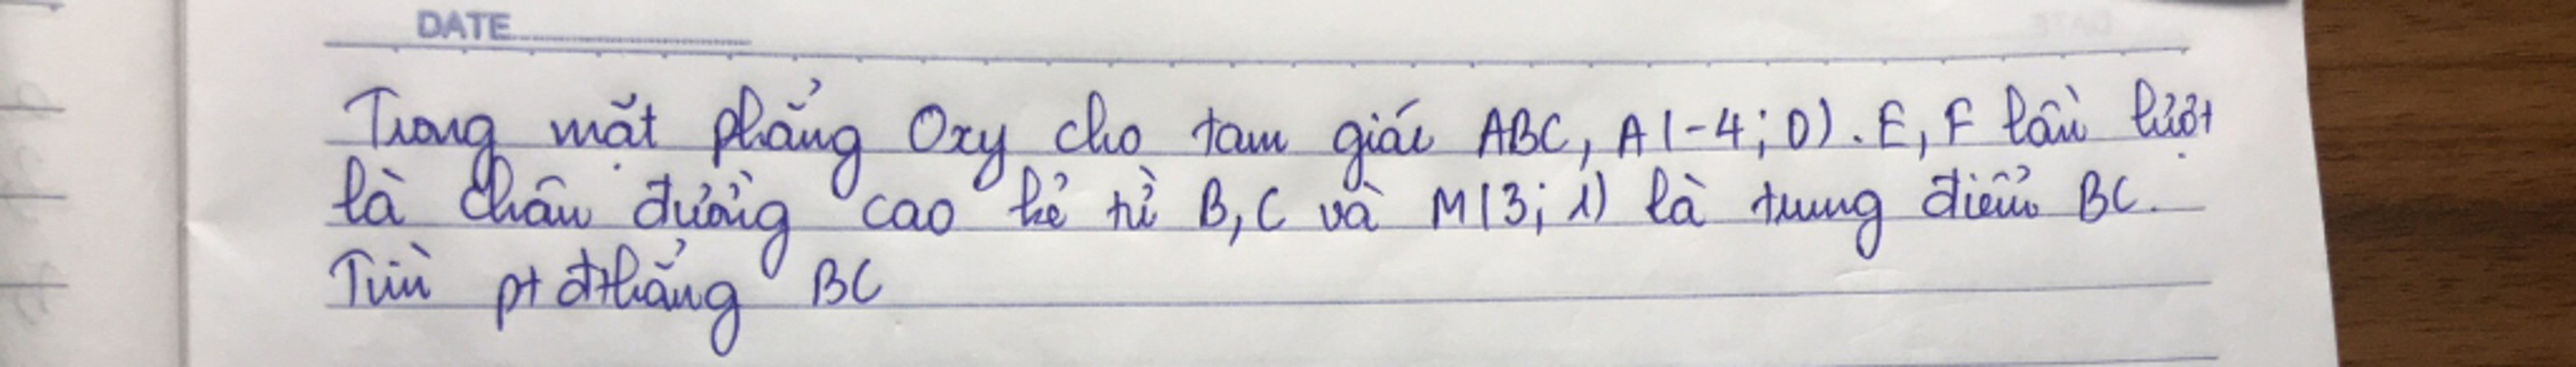 DATE
Trong mặt phẳng Oxy cho tam giác ABC, A(-4;0). E, F lần lượt
là chân đường cao kẻ từ B, C và M(3; 1) là trung điểm BC.
Tìm pt đthẳng BC